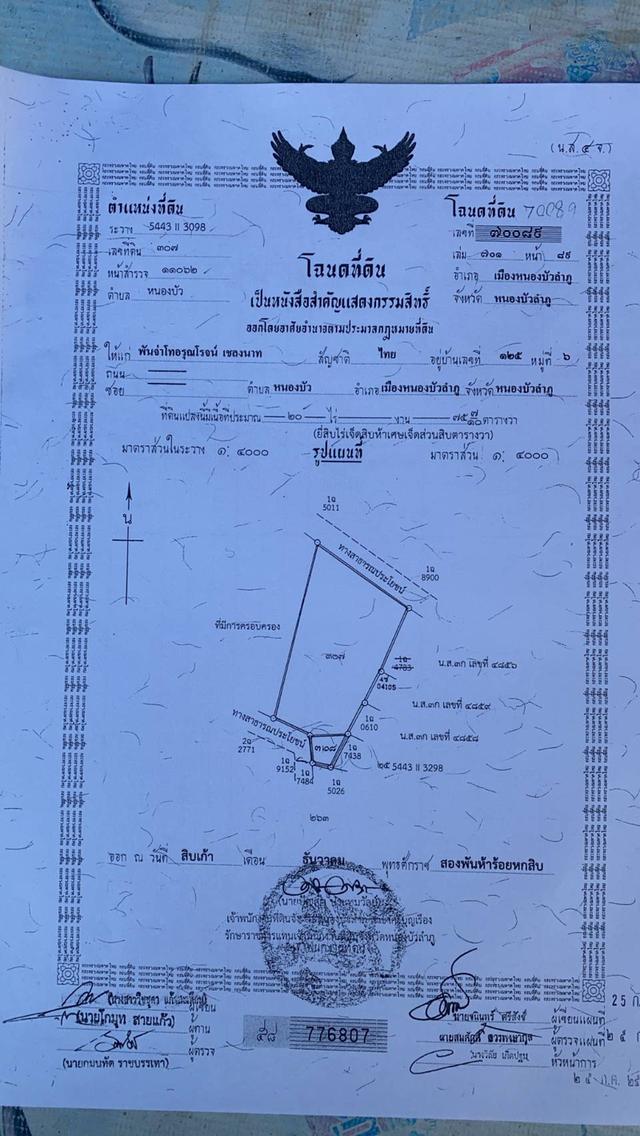 (น.ส.๔ จ.)
ตำแหน่งที่ดิน
ระวาง 5443 II 3098
เลขที่ดิน ๓๐๗
หน้าสำรวจ ๑๑๐๖๒
ตำบล หนองบัว
โฉนดที่ดิน 70089
เลขที่ ๗๐๐๘๙
เล่ม ๗๐๑ หน้า ๘๙
อำเภอ เมืองหนองบัวลำภู
จังหวัด หนองบัวลำภู
โฉนดที่ดิน
เป็นหนังสือสำคัญแสดงกรรมสิทธิ์
ออกโดยอาศัยอำนาจตามประมวลกฎหมายที่ดิน
ให้แก่ พันจ่าโทอรุณโรจน์ เชลงนาท สัญชาติ ไทย อยู่บ้านเลขที่ ๑๒๕ หมู่ที่ ๖
ถนน
ซอย ตำบล หนองบัว อำเภอ เมืองหนองบัวลำภู จังหวัด หนองบัวลำภู
ที่ดินแปลงนี้มีเนื้อที่ประมาณ ๒๐ ไร่ งาน ๗๕ ๗/๑๐ ตารางวา
(ยี่สิบไร่เจ็ดสิบห้าเศษเจ็ดส่วนสิบตารางวา)
มาตราส่วนในระวาง ๑: ๔๐๐๐ รูปแผนที่ มาตราส่วน ๑: ๔๐๐๐
น
1ฉ
5011
ทางสาธารณประโยชน์
1ฉ
8900
ที่มีการครอบครอง
๓๐๗
1ฉ
4783
น.ส.๓ก เลขที่ ๔๘๕๖
04105
น.ส.๓ก เลขที่ ๔๘๕๙
1ฉ
0610
ทางสาธารณประโยชน์
น.ส.๓ก เลขที่ ๔๘๕๘
2ฉ
2771
๓๐๘
1ฉ
7438
1ฉ
9152
1ฉ
7484
1ฉ
5026
๒๕ 5443 II 3298
๒๖๓
ออก ณ วันที่ สิบเก้า เดือน ธันวาคม พุทธศักราช สองพันห้าร้อยหกสิบ
(นายโกมุท สายแก้ว)
ผู้เขียน
ผู้ทาน
ผู้ตรวจ
(นายกมนทัต ราชบรรเทา)
๕๘ 776807
ผู้เขียนแผนที่
ผู้ตรวจแผนที่
หัวหน้าการ
25 ก